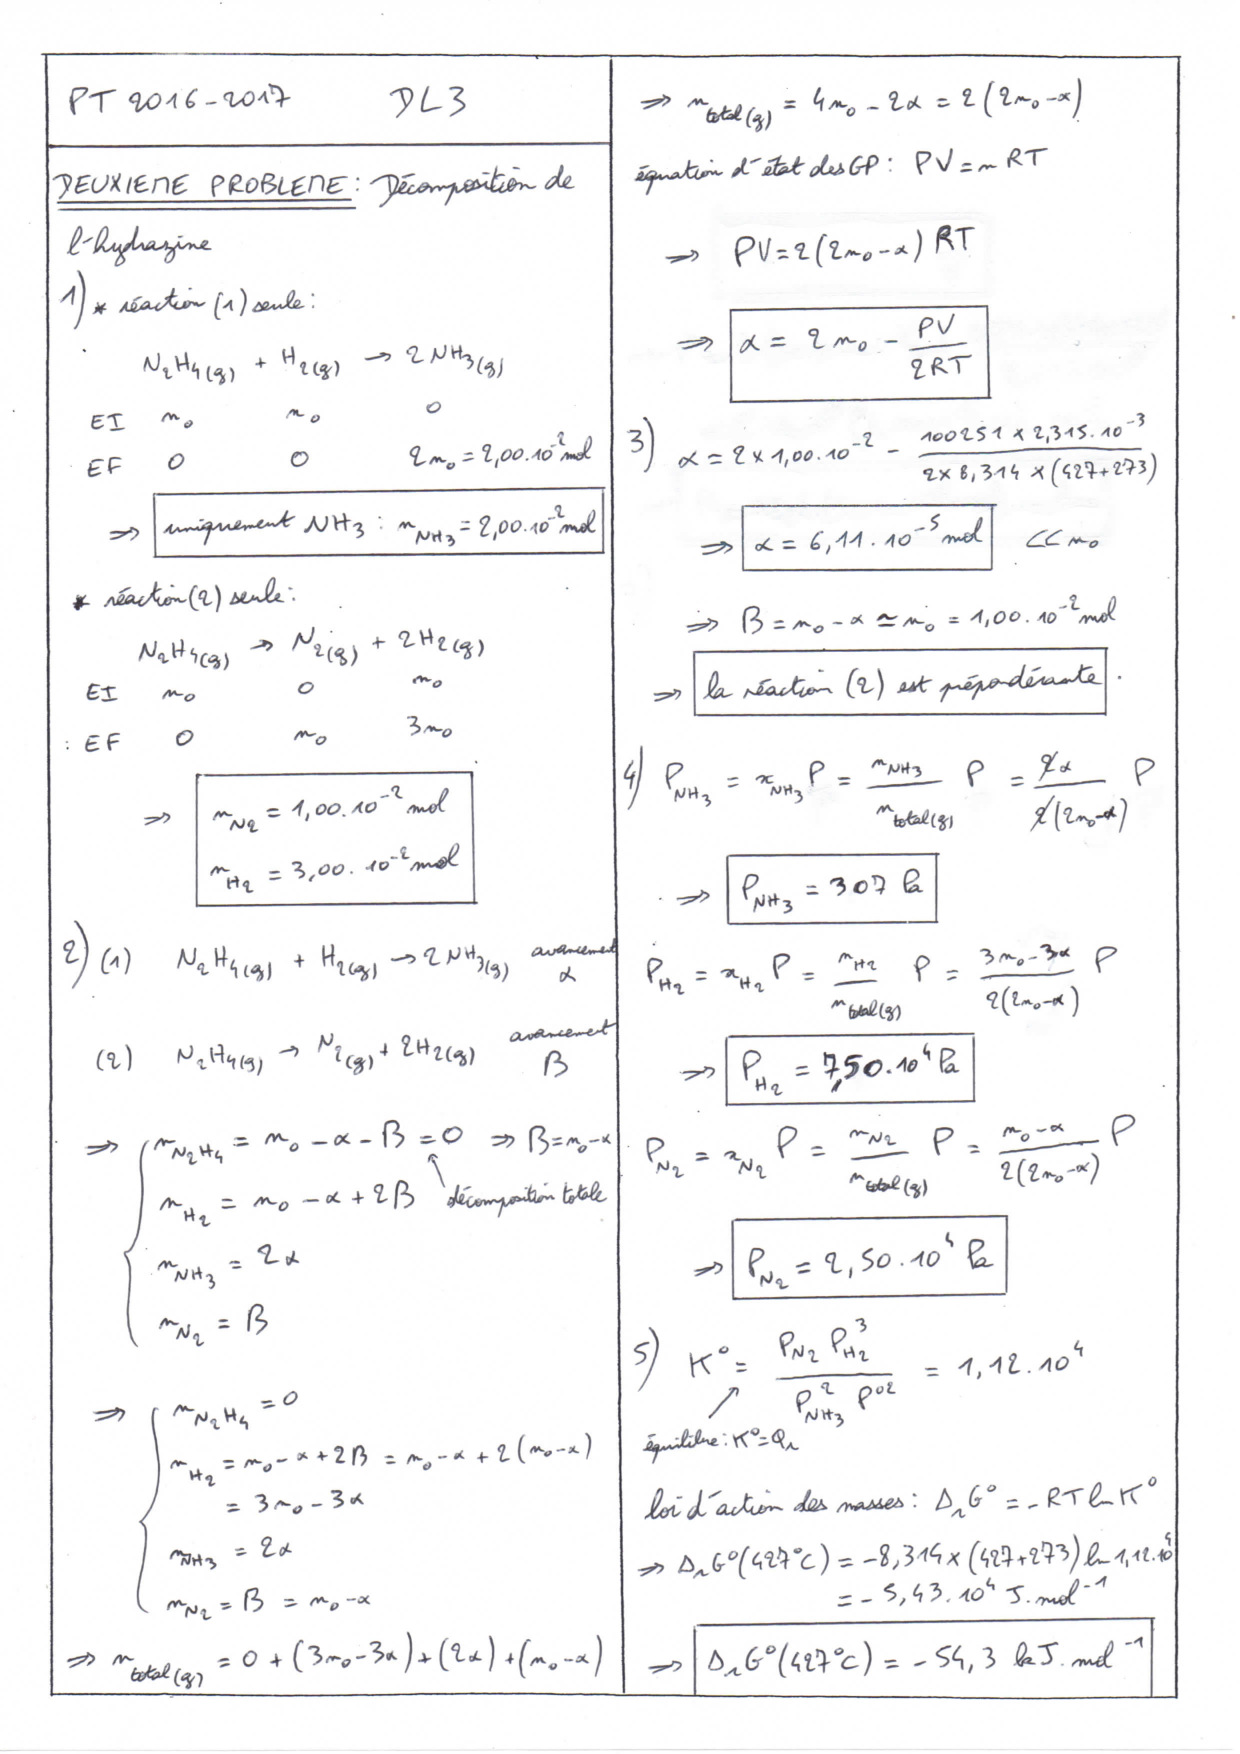 PT 2016-2017 DL3
DEUXIEME PROBLEME : Décomposition de
l'hydrazine
1) * réaction (1) seule :
N₂H₄(g) + H₂(g) → 2 NH₃(g)
EI n₀ n₀ 0
EF 0 0 2n₀ = 2,00.10⁻² mol
⇒ uniquement NH₃ : n_NH₃ = 2,00.10⁻² mol
* réaction (2) seule :
N₂H₄(g) → N₂(g) + 2H₂(g)
EI n₀ 0 n₀
: EF 0 n₀ 3n₀
⇒ n_N₂ = 1,00.10⁻² mol
n_H₂ = 3,00.10⁻² mol
2) (1) N₂H₄(g) + H₂(g) → 2 NH₃(g) avancement α
(2) N₂H₄(g) → N₂(g) + 2H₂(g) avancement β
⇒ { n_N₂H₄ = n₀ - α - β = 0 ⇒ β = n₀ - α
n_H₂ = n₀ - α + 2β décomposition totale
n_NH₃ = 2α
n_N₂ = β
⇒ { n_N₂H₄ = 0
n_H₂ = n₀ - α + 2β = n₀ - α + 2(n₀ - α)
= 3n₀ - 3α
n_NH₃ = 2α
n_N₂ = β = n₀ - α
⇒ n_total(g) = 0 + (3n₀ - 3α) + (2α) + (n₀ - α)
⇒ n_total(g) = 4n₀ - 2α = 2(2n₀ - α)
équation d'état des GP : PV = nRT
⇒ PV = 2(2n₀ - α) RT
⇒ α = 2n₀ - PV/2RT
3) α = 2 × 1,00.10⁻² - (100251 × 2,315.10⁻³)/(2 × 8,314 × (427+273))
⇒ α = 6,11.10⁻⁵ mol << n₀
⇒ β = n₀ - α ≃ n₀ = 1,00.10⁻² mol
⇒ la réaction (2) est prépondérante.
4) P_NH₃ = x_NH₃ P = n_NH₃/n_total(g) P = 2α/2(2n₀-α) P
⇒ P_NH₃ = 307 Pa
P_H₂ = x_H₂ P = n_H₂/n_total(g) P = (3n₀ - 3α)/2(2n₀-α) P
⇒ P_H₂ = 7,50.10⁴ Pa
P_N₂ = x_N₂ P = n_N₂/n_total(g) P = (n₀ - α)/2(2n₀-α) P
⇒ P_N₂ = 2,50.10⁴ Pa
5) K° = P_N₂ P_H₂³ / P_NH₃² P°² = 1,12.10⁴
équilibre : K° = Qr
loi d'action des masses : ΔrG° = -RT ln K°
⇒ ΔrG°(427°C) = -8,314 × (427+273) ln 1,12.10⁴
= -5,43.10⁴ J.mol⁻¹
⇒ ΔrG°(427°C) = -54,3 kJ.mol⁻¹